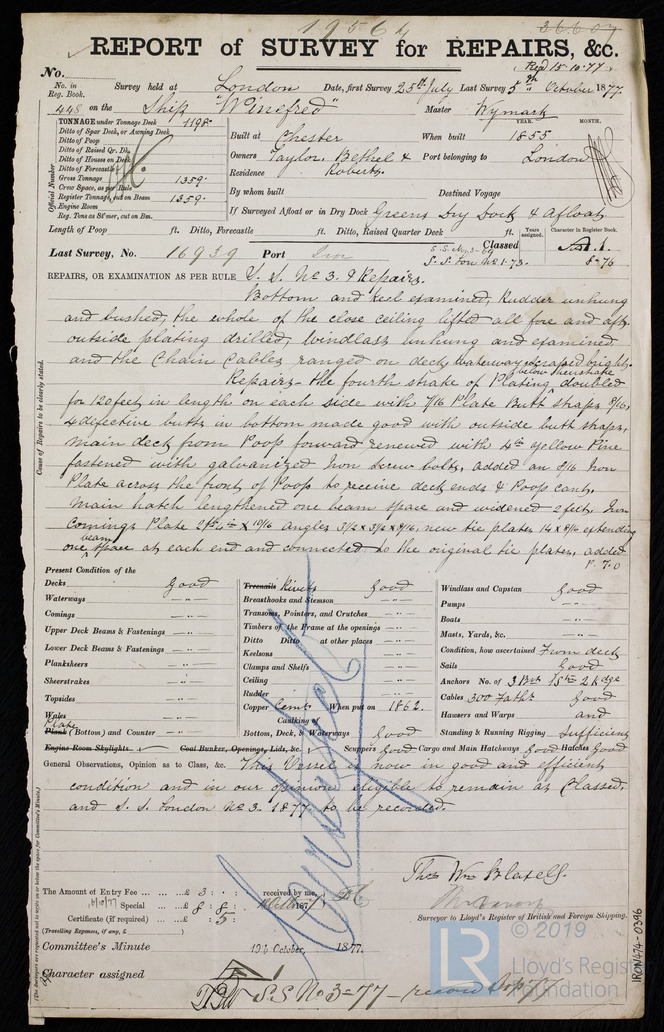 19564
36607
REPORT of SURVEY for REPAIRS, &c.
No. Recd 15.10.77
No. in Reg. Book. Survey held at London Date, first Survey 25th July Last Survey 5th October 1877.
448 on the Ship "Winefred" Master Wymark
TONNAGE under Tonnage Deck 1198
Ditto of Spar Deck, or Awning Deck
Ditto of Poop
Ditto of Raised Qr. Dk.
Ditto of Houses on Deck
Ditto of Forecastle
Gross Tonnage 1359
Crew Space, as per Rule
Register Tonnage, cut on Beam 1359
Engine Room
Reg. Tons as St'mer, cut on Bm.
Official Number
YEAR. MONTH.
Built at Chester When built 1855
Owners Taylor, Bethel & Roberts. Port belonging to London
Residence
By whom built Destined Voyage
If Surveyed Afloat or in Dry Dock Greens Dry Dock & Afloat
Length of Poop ft. Ditto, Forecastle ft. Ditto, Raised Quarter Deck ft. Years assigned. Character in Register Book.
Last Survey, No. 16939 Port Classed A.1.
S.S. No. 3-69
S.S. Lon No 1.73.
8-76
REPAIRS, OR EXAMINATION AS PER RULE S.S. No 3. & Repairs.
Cause of Repairs to be clearly stated.
Bottom and keel examined, Rudder unhung
and bushed, the whole of the close ceiling lifted all fore and aft,
outside plating drilled, windlass unhung and examined
and the Chain Cables ranged on deck, waterways scraped bright.
Repairs- the fourth strake of Plating below sheerstrake doubled
for 120 feet in length on each side with 7/16 Plate Butt straps 8/16,
4 defective butts in bottom made good with outside butt straps,
main deck from Poop forward renewed with 4in yellow Pine
fastened with galvanized Iron screw bolts, added an 8/16 Iron
Plate across the front of Poop to receive deck ends & Poop cant,
Main hatch lengthened one beam space and widened 2 feet, Iron
Comings Plate x 10/16 angles 3 1/2 x 3 1/2 x 8/16, new tie plates 14 x 8/16 extending
one beam space at each end and connected to the original tie plates, added
P.T.O
Present Condition of the
Decks good
Waterways -"-
Comings -"-
Upper Deck Beams & Fastenings -"-
Lower Deck Beams & Fastenings -"-
Planksheers -"-
Sheerstrakes -"-
Topsides -"-
Wales -"-
Plank Plate (Bottom) and Counter -"-
Engine Room Skylights Coal Bunker, Openings, Lids, &c.
Treenails Rivets good
Breasthooks and Stemson -"-
Transoms, Pointers, and Crutches -"-
Timbers of the Frame at the openings -"-
Ditto Ditto at other places -"-
Keelsons -"-
Clamps and Shelfs -"-
Ceiling -"-
Rudder -"-
Copper Cemt When put on 1862.
Caulking of
Bottom, Deck, & Waterways good
Scuppers good Cargo and Main Hatchways good Hatches good
Windlass and Capstan good
Pumps -"-
Boats -"-
Masts, Yards, &c. -"-
Condition, how ascertained From deck
Sails Good
Anchors No. of 3 Bwr 1 St 2 Kdge
Cables 300 Faths good
Hawsers and Warps and
Standing & Running Rigging Sufficient
General Observations, Opinion as to Class, &c. This Vessel is now in good and efficient
condition and in our opinion eligible to remain as Classed,
and S.S. London No 3. 1877 to be recorded.
Thos Wm Blaxell.
The Amount of Entry Fee £ 3 : : received by me,
Special £ 8 : 8 : 1877
Certificate (if required) £ : 5 :
(Travelling Expenses, if any, £
Surveyor to Lloyd's Register of British and Foreign Shipping.
Committee's Minute 19th October, 1877.
Character assigned A1
S.S No 3-77 - record
(The Surveyors are requested not to write on or below the space for Committee's Minute.)
IRON474-0396
© 2019
LR
Lloyd's Register
Foundation